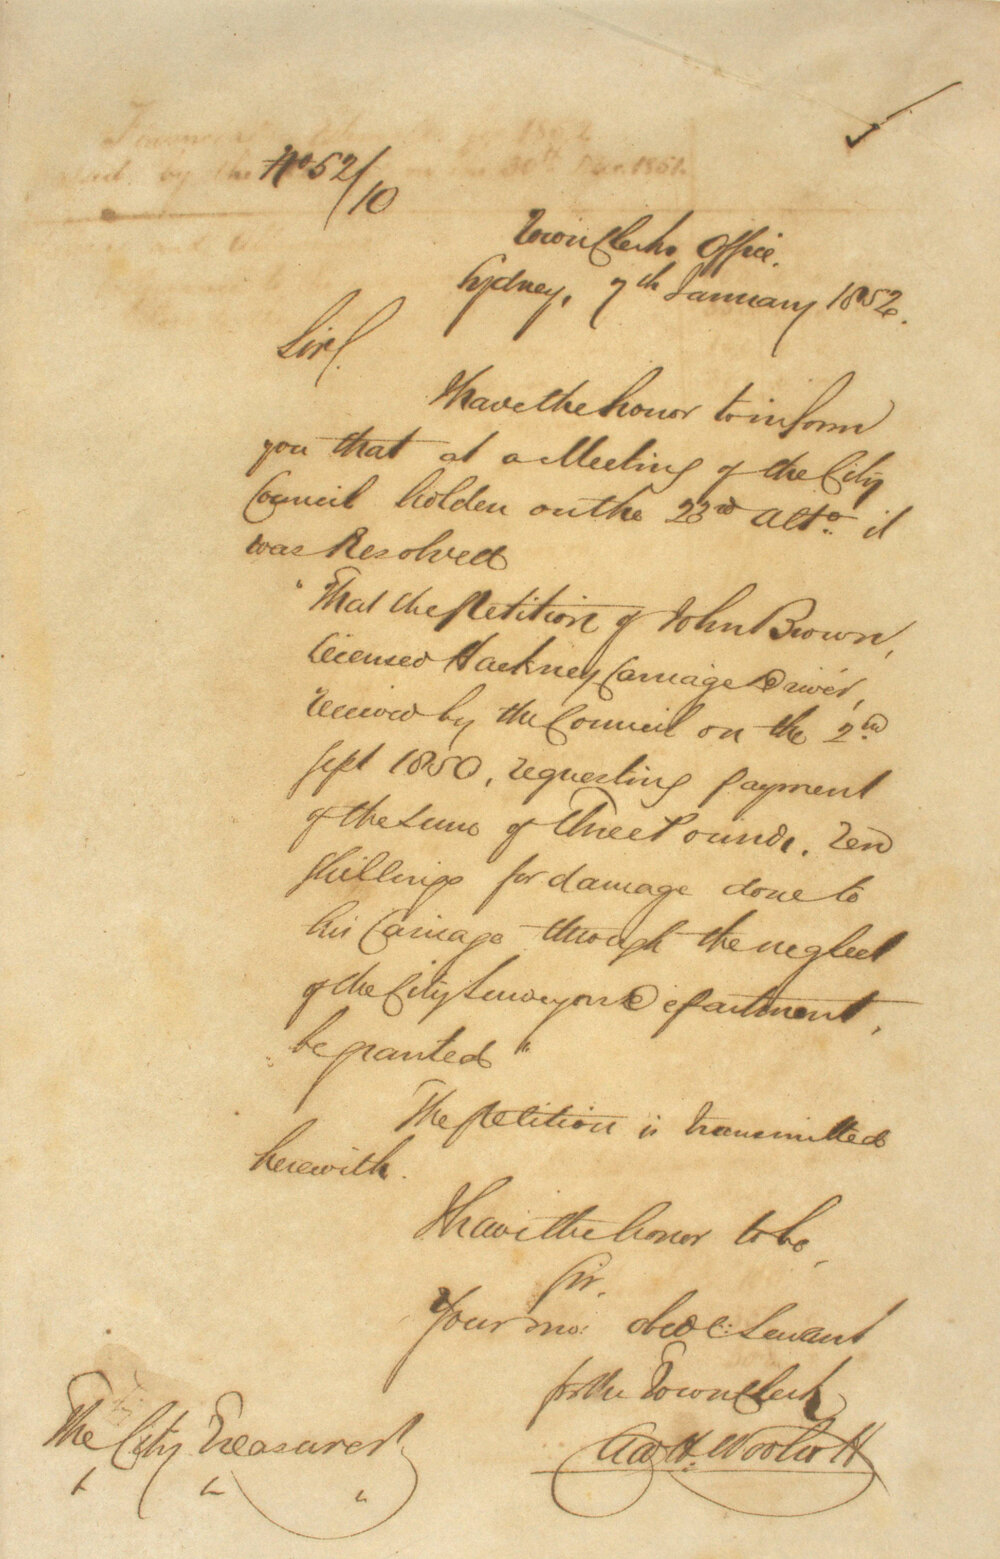 No 52/10
Town Clerks Office.
Sydney, 7th January 1852.
Sir/.
I have the honor to inform
you that at a Meeting of the City
Council holden on the 23rd Ulto. it
was Resolved
"That the Petition of John Brown,
licensed Hackney Carriage Driver,
received by the Council on the 2nd
Sept 1850, requesting payment
of the sum of Three Pounds. Ten
Shillings for damage done to
his Carriage through the neglect
of the City Surveyors Department,
"be granted"
The Petition is transmitted
herewith.
I have the honor to be,
Sir.
Your mo: obedt: Servant
for the Town Clerk
H. Woolcott
The City Treasurer
" " "